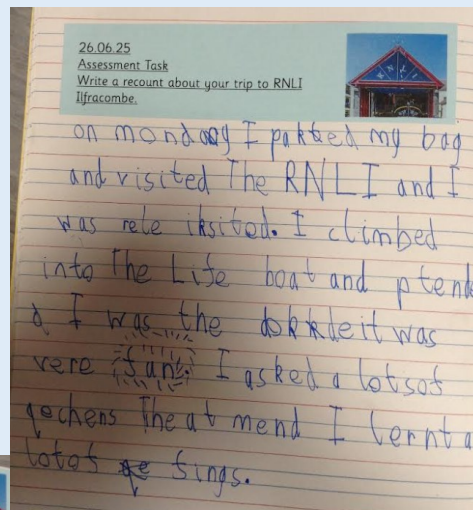 26.06.25
Assessment Task
Write a recount about your trip to RNLI
Ilfracombe.
on monday I pakted my bag
and visited The RNLI and I
was rele iksited. I climbed
into The Life boat and ptend
d I was the it was
vere fun. I asked a lotsof
qechens The at mend I lernt a
lotof fings.